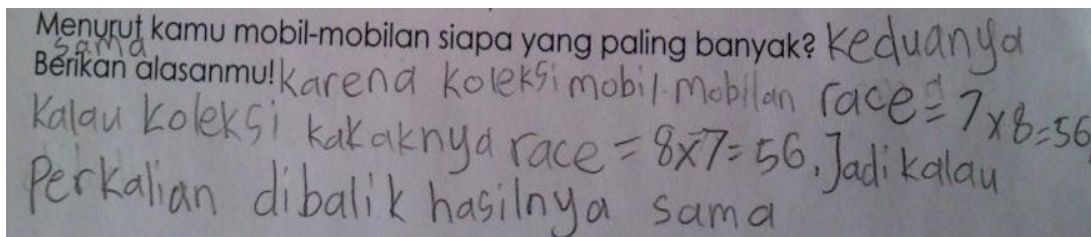 Menurut kamu mobil-mobilan siapa yang paling banyak? Keduanya
sama
Berikan alasanmu! Karena koleksi mobil-mobilan race = 7x8=56
Kalau koleksi kakaknya race = 8x7=56, Jadi kalau
Perkalian dibalik hasilnya sama